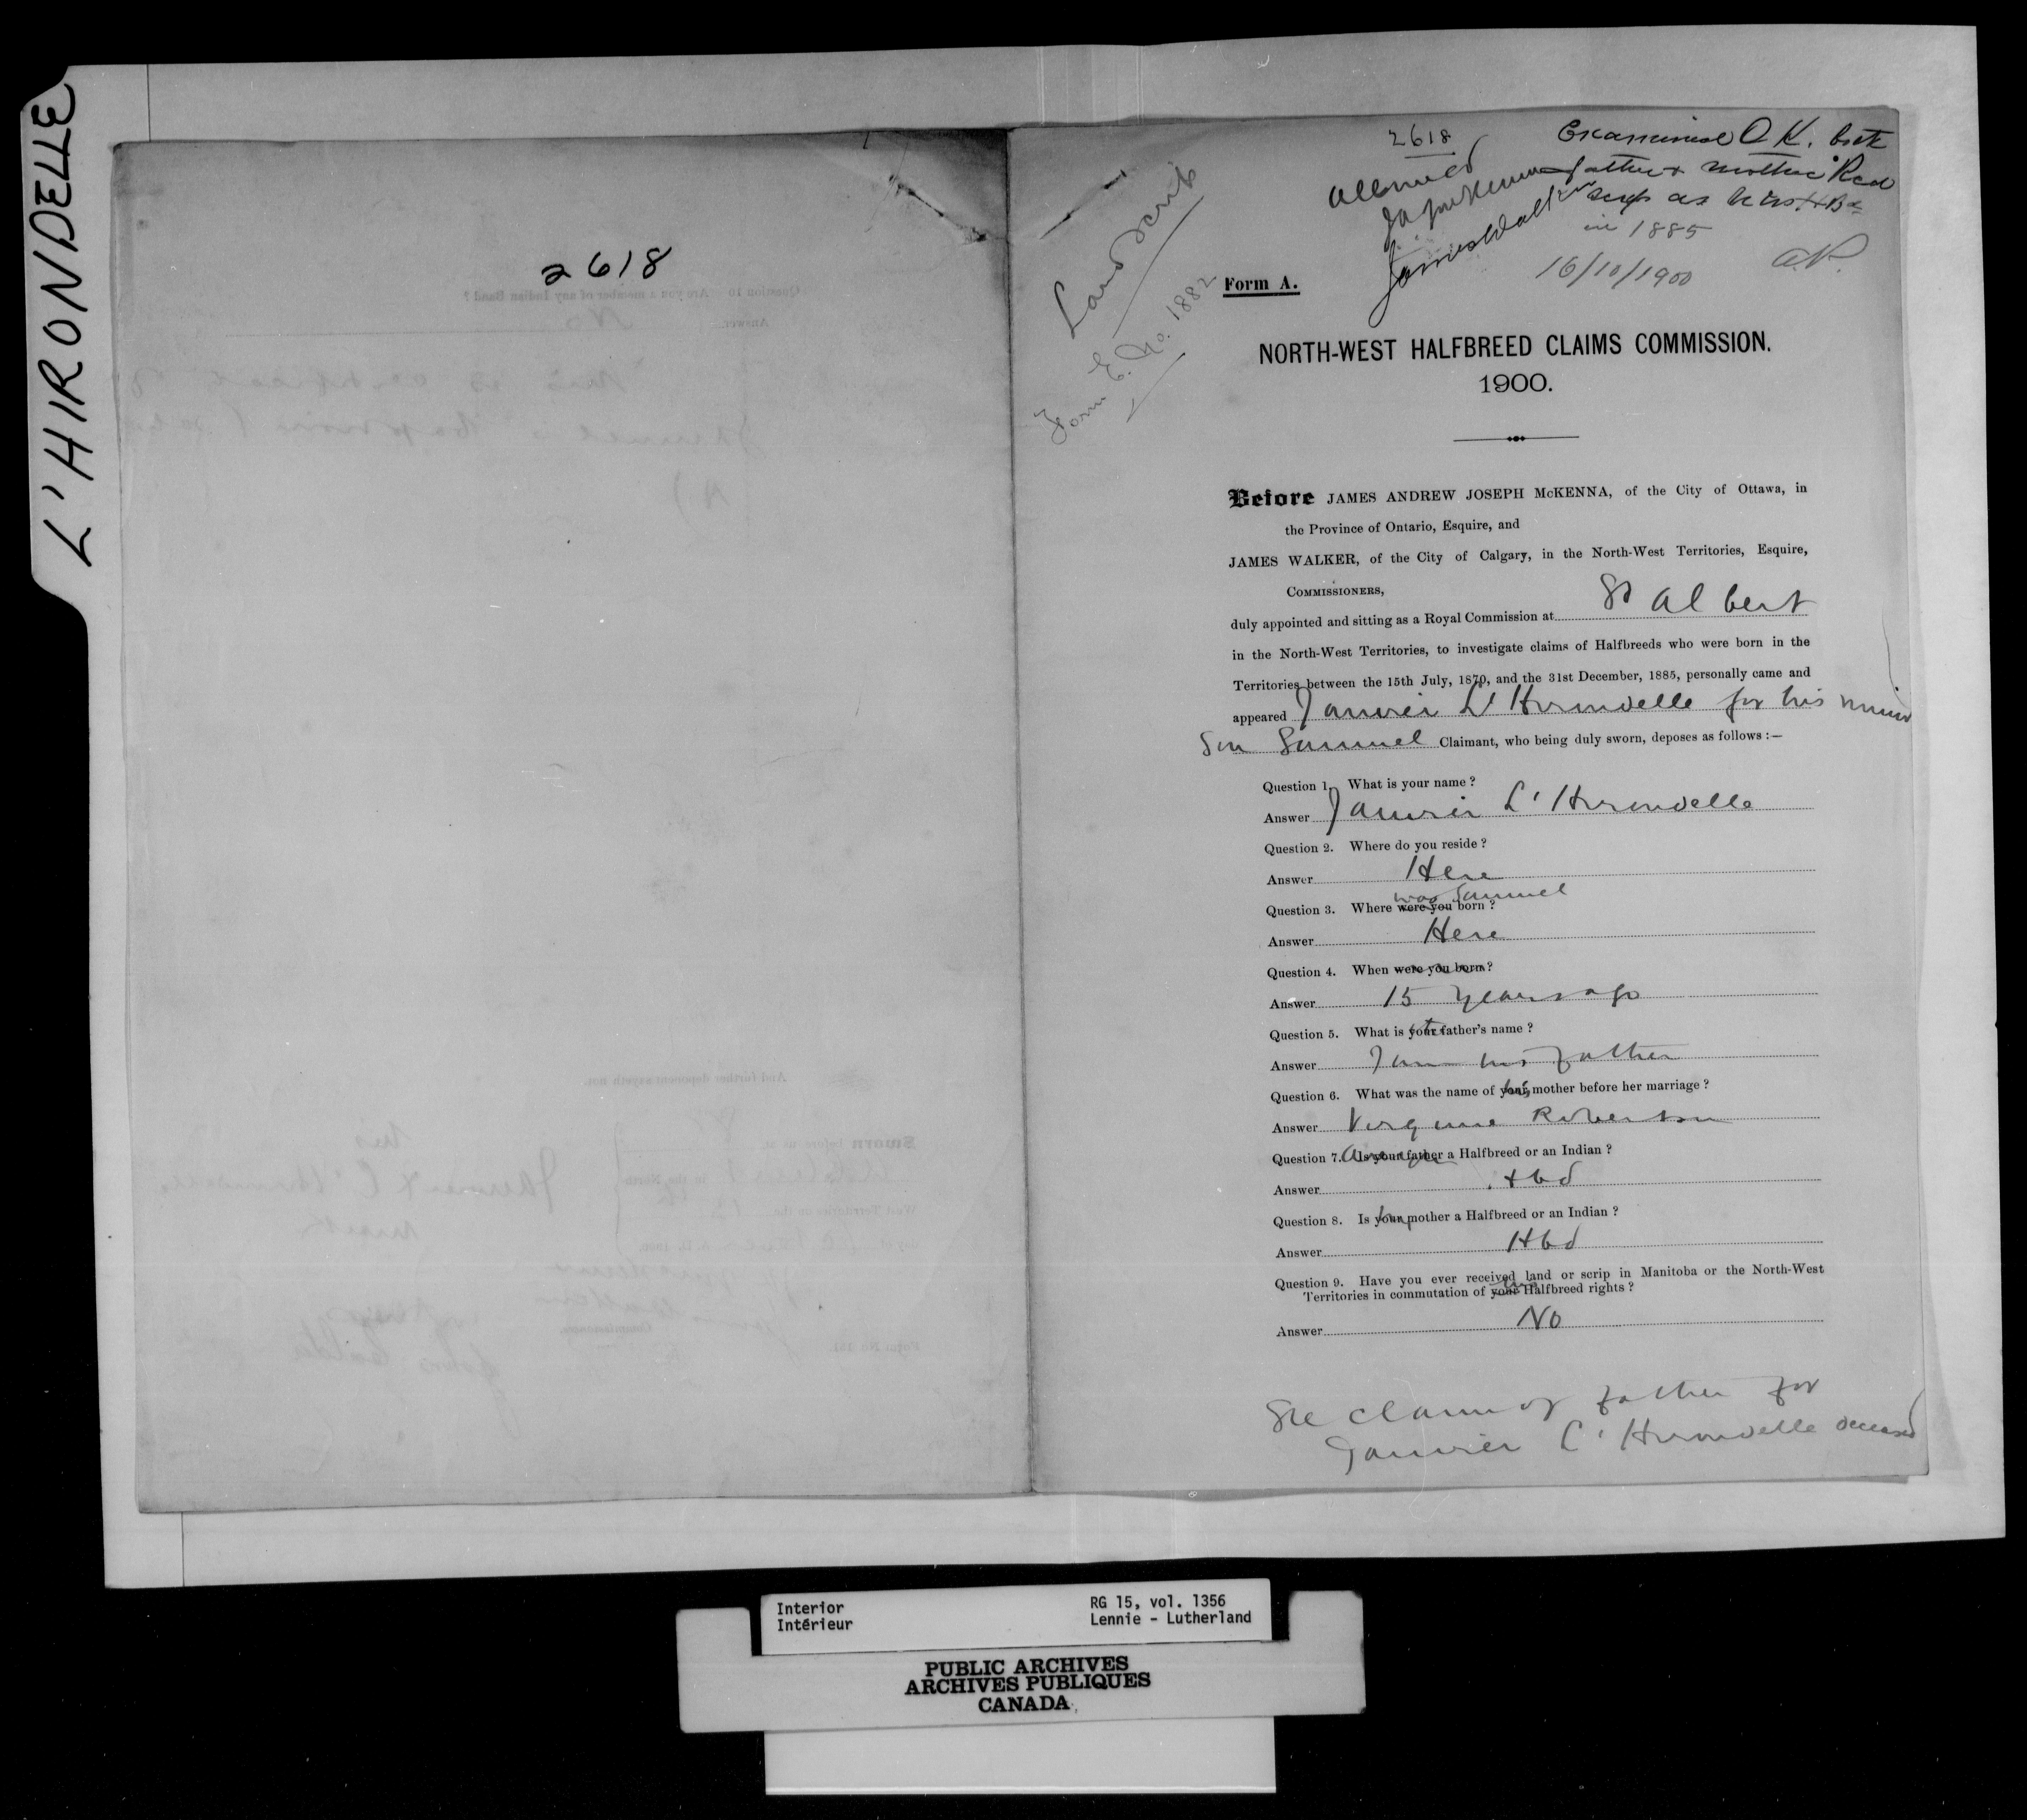 L'HIRONDELLE
2618
2618
Allowed
JaJMcKenna
James Walker
Examined O.K. both
father & mother Recd
scrip as NWHBds
in 1885
16/10/1900
Land scrip
Form E. No. 1882
Form A.
NORTH-WEST HALFBREED CLAIMS COMMISSION.
1900.
Before JAMES ANDREW JOSEPH McKENNA, of the City of Ottawa, in
the Province of Ontario, Esquire, and
JAMES WALKER, of the City of Calgary, in the North-West Territories, Esquire,
COMMISSIONERS,
duly appointed and sitting as a Royal Commission at St Albert
in the North-West Territories, to investigate claims of Halfbreeds who were born in the
Territories between the 15th July, 1870, and the 31st December, 1885, personally came and
appeared Janvier L'Hirondelle for his minor
son Samuel Claimant, who being duly sworn, deposes as follows :—
Question 1. What is your name ?
Answer Janvier L'Hirondelle
Question 2. Where do you reside ?
Answer Here
was Samuel
Question 3. Where were you born ?
Answer Here
Question 4. When were you born ?
Answer 15 years ago
Question 5. What is your his father's name ?
Answer I am his father
Question 6. What was the name of your his mother before her marriage ?
Answer Virginie Robertson
Question 7. Are you Is your father a Halfbreed or an Indian ?
Answer Hbd
Question 8. Is your his mother a Halfbreed or an Indian ?
Answer Hbd
Question 9. Have you ever received land or scrip in Manitoba or the North-West
Territories in commutation of your his Halfbreed rights ?
Answer No
See claim of father for
Janvier L'Hirondelle deceased
Interior
Intérieur
RG 15, vol. 1356
Lennie - Lutherland
PUBLIC ARCHIVES
ARCHIVES PUBLIQUES
CANADA